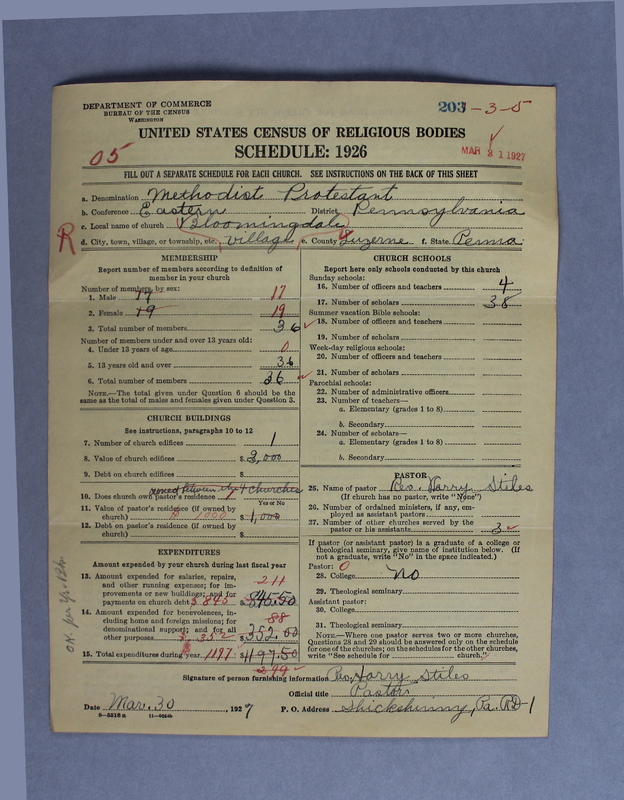 DEPARTMENT OF COMMERCE
BUREAU OF THE CENSUS
WASHINGTON
203-3-5
UNITED STATES CENSUS OF RELIGIOUS BODIES
05
SCHEDULE: 1926
MAR 31 1927
FILL OUT A SEPARATE SCHEDULE FOR EACH CHURCH. SEE INSTRUCTIONS ON THE BACK OF THIS SHEET
a. Denomination Methodist Protestant
b. Conference Eastern District Pennsylvania
R c. Local name of church Bloomingdale
d. City, town, village, or township, etc. village e. County Luzerne f. State Penna
MEMBERSHIP
Report number of members according to definition of member in your church
Number of members by sex:
1. Male 17 17
2. Female 19 19
3. Total number of members 36
Number of members under and over 13 years old:
4. Under 13 years of age 0
5. 13 years old and over 36
6. Total number of members 36
NOTE.—The total given under Question 6 should be the same as the total of males and females given under Question 3.
CHURCH BUILDINGS
See instructions, paragraphs 10 to 12
7. Number of church edifices 1
8. Value of church edifices $ 3,000
9. Debt on church edifices $
owned between the 4 churches
10. Does church own pastor's residence
Yes or No
11. Value of pastor's residence (if owned by church) 1000 $ 1,000
12. Debt on pastor's residence (if owned by church) $
EXPENDITURES
Amount expended by your church during last fiscal year
13. Amount expended for salaries, repairs, and other running expenses; for improvements or new buildings; and for payments on church debt $ 845 211 $ 845.50
14. Amount expended for benevolences, including home and foreign missions; for denominational support; and for all other purposes $ 352 88 $ 352.00
15. Total expenditures during year $ 1197 $ 1197.50
299
CHURCH SCHOOLS
Report here only schools conducted by this church
Sunday schools:
16. Number of officers and teachers 4
17. Number of scholars 38
Summer vacation Bible schools:
18. Number of officers and teachers
19. Number of scholars
Week-day religious schools:
20. Number of officers and teachers
21. Number of scholars
Parochial schools:
22. Number of administrative officers
23. Number of teachers—
a. Elementary (grades 1 to 8)
b. Secondary
24. Number of scholars—
a. Elementary (grades 1 to 8)
b. Secondary
PASTOR
25. Name of pastor Rev. Harry Stiles
(If church has no pastor, write "None")
26. Number of ordained ministers, if any, employed as assistant pastors
27. Number of other churches served by the pastor or his assistants 3
If pastor (or assistant pastor) is a graduate of a college or theological seminary, give name of institution below. (If not a graduate, write "No" in the space indicated.)
Pastor: 0
28. College No
29. Theological seminary
Assistant pastor:
30. College
31. Theological seminary
NOTE.—Where one pastor serves two or more churches, Questions 28 and 29 should be answered only on the schedule for one of the churches; on the schedules for the other churches, write "See schedule for church."
Signature of person furnishing information Rev. Harry Stiles
Official title Pastor
Date Mar. 30, 1927 P. O. Address Shickshinny, Pa. RD-1